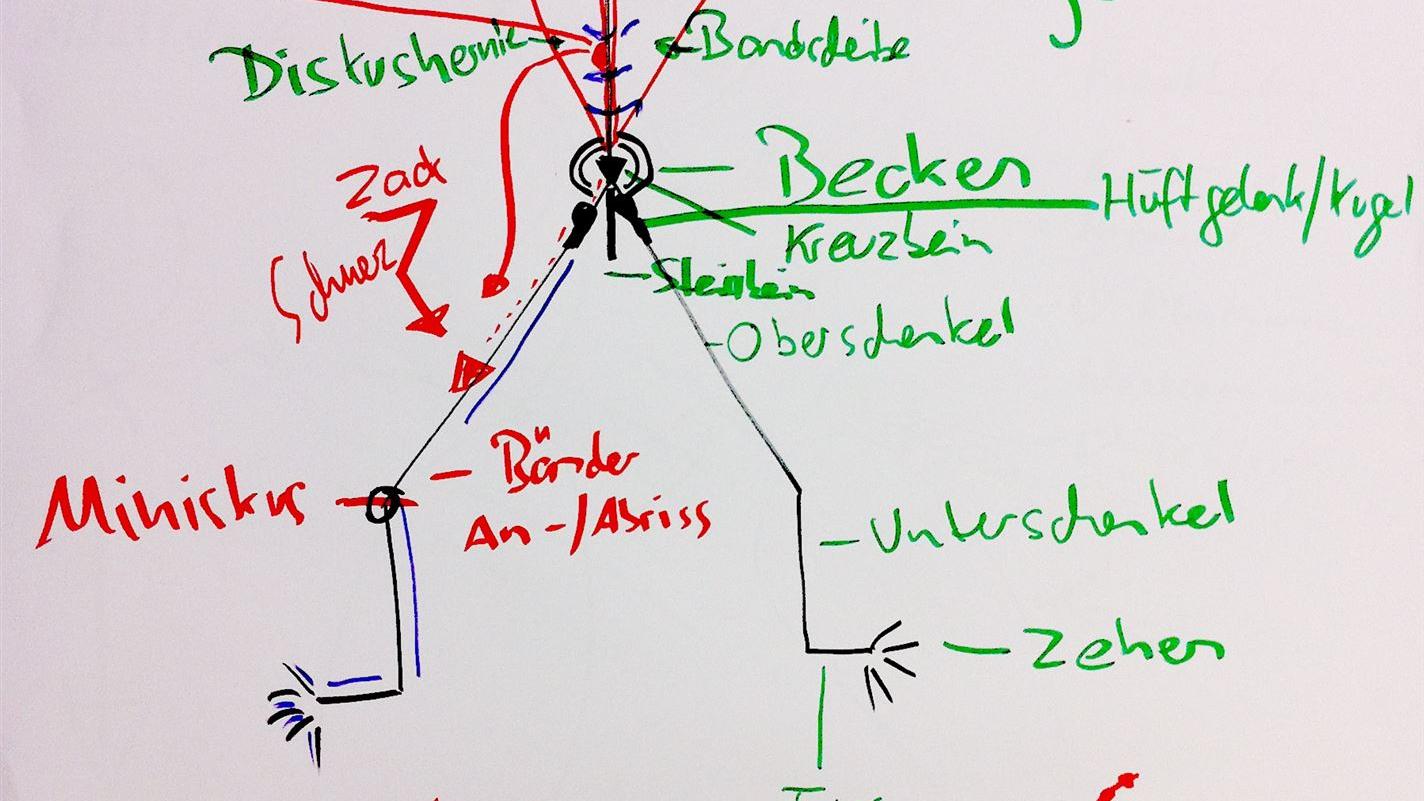 Diskushernie
Bandscheibe
Zack
Becken
Hüftgelenk/Kugel
Kreuzbein
Schmerz
Steissbein
Oberschenkel
Bänder
Miniskus
An-/Abriss
Unterschenkel
Zehen